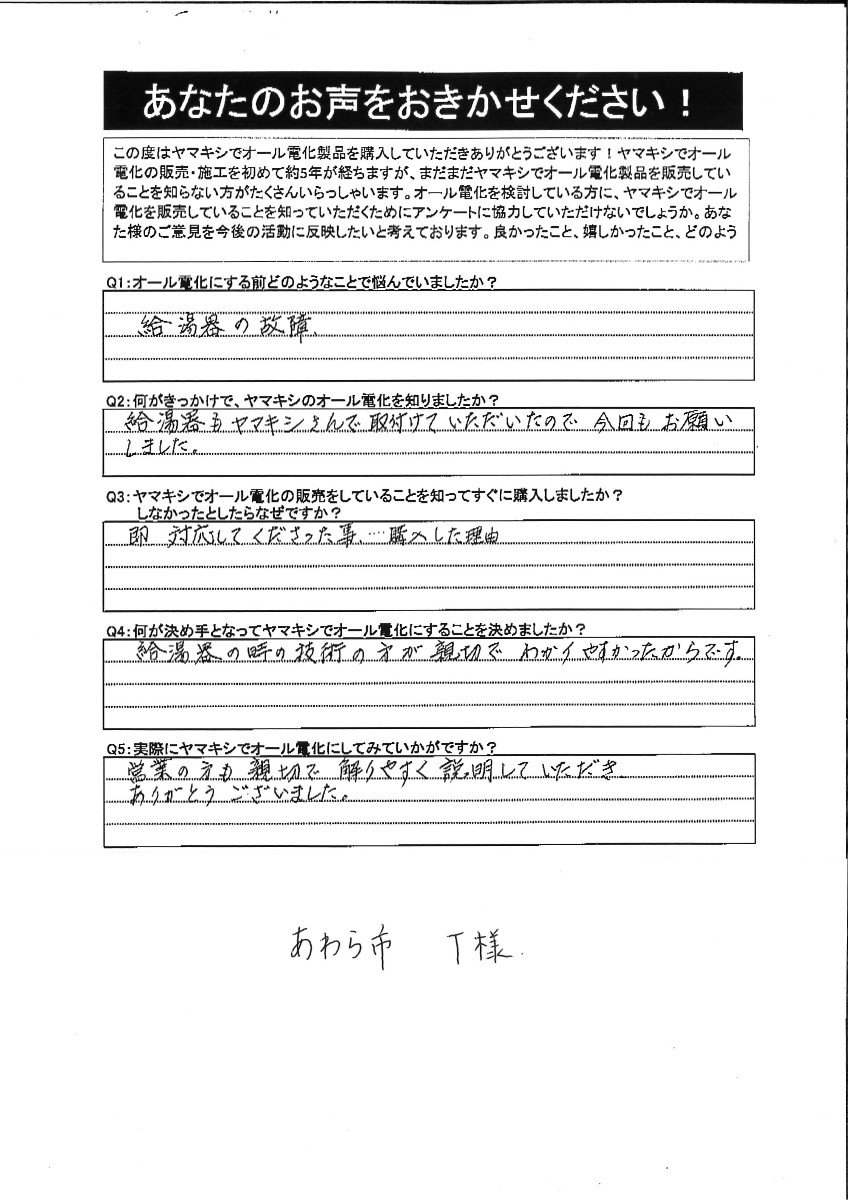 あなたのお声をおきかせください！
この度はヤマキシでオール電化製品を購入していただきありがとうございます！ヤマキシでオール
電化の販売・施工を初めて約5年が経ちますが、まだまだヤマキシでオール電化製品を販売してい
ることを知らない方がたくさんいらっしゃいます。オール電化を検討している方に、ヤマキシでオール
電化を販売していることを知っていただくためにアンケートに協力していただけないでしょうか。あな
た様のご意見を今後の活動に反映したいと考えております。良かったこと、嬉しかったこと、どのよう
Q1：オール電化にする前どのようなことで悩んでいましたか？
給湯器の故障、
Q2：何がきっかけで、ヤマキシのオール電化を知りましたか？
給湯器もヤマキシさんで取付けていただいたので 今回もお願い
しました。
Q3：ヤマキシでオール電化の販売をしていることを知ってすぐに購入しましたか？
しなかったとしたらなぜですか？
即 対応してくださった事、…購入した理由
Q4：何が決め手となってヤマキシでオール電化にすることを決めましたか？
給湯器の時の技術の方が親切で わかりやすかったからです。
Q5：実際にヤマキシでオール電化にしてみていかがですか？
営業の方も 親切で 解りやすく 説明していただき
ありがとうございました。
あわら市 T様